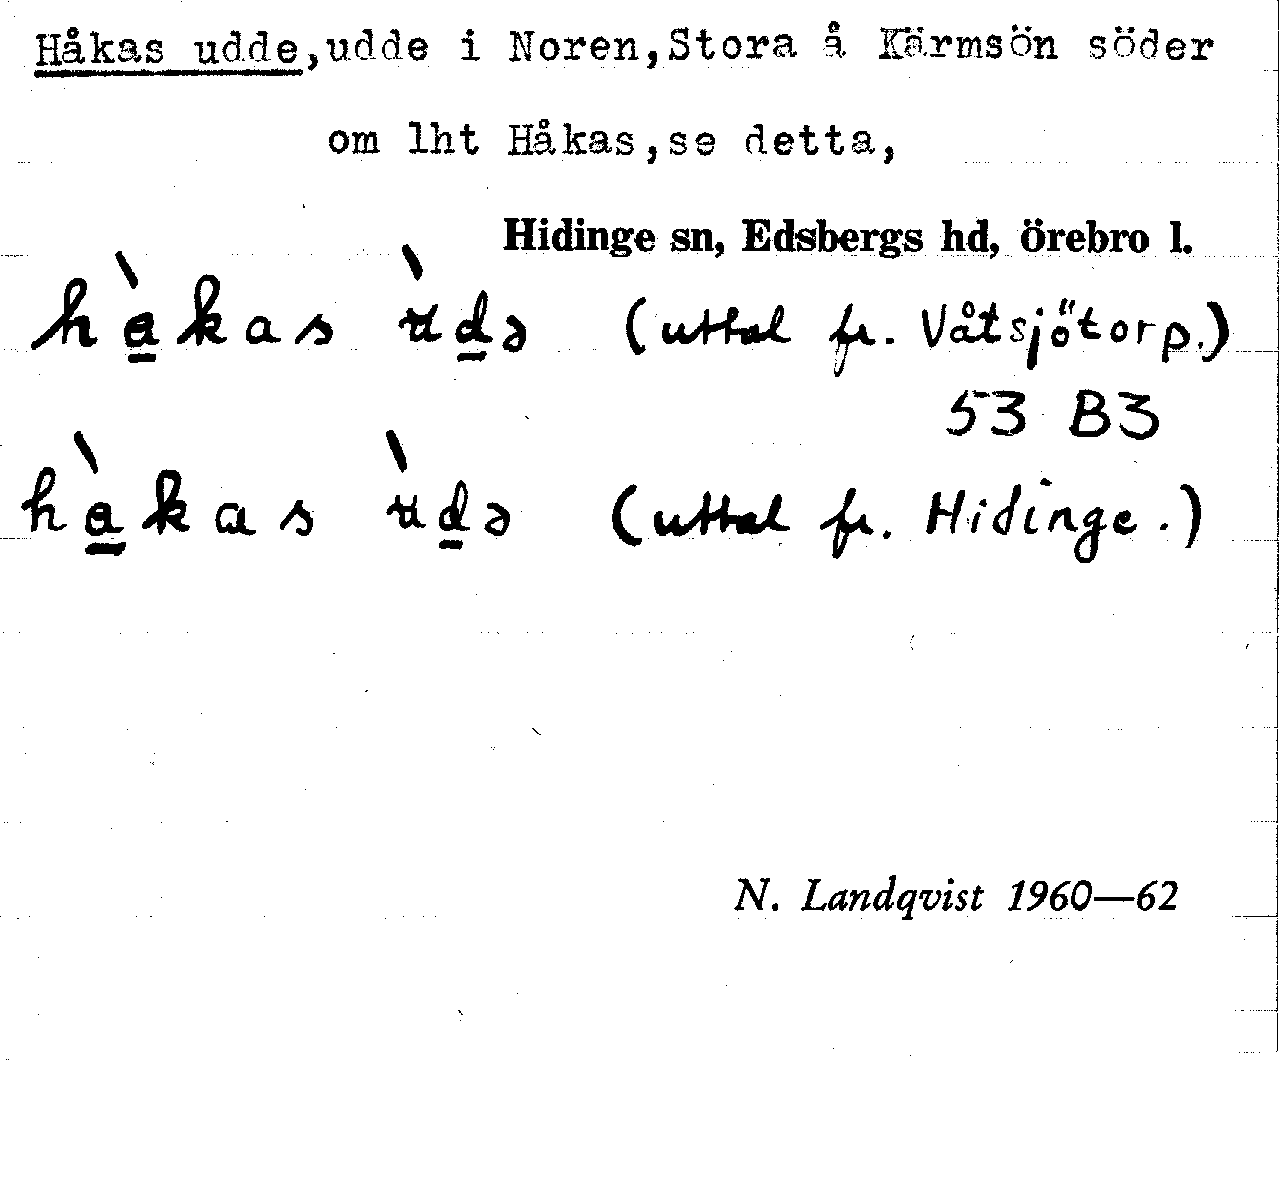 Håkas udde,udde i Noren,Stora å Kärmsön söder
om lht Håkas,se detta,
Hidinge sn, Edsbergs hd, örebro l.
hàkas ùdə (uttal fr. Våtsjötorp.)
53 B3
hàkas ùdə (uttal fr. Hidinge.)
N. Landqvist 1960—62